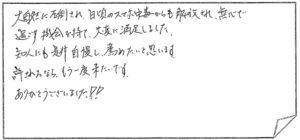 大自然に圧倒され、日頃のスマホ中毒からも解放され、無心で
過ごす機会が持て、大変に満足しました。
知人にも是非自慢し、薦めたいと思います。
許されるなら、もう一度来たいです。
ありがとうございました!!